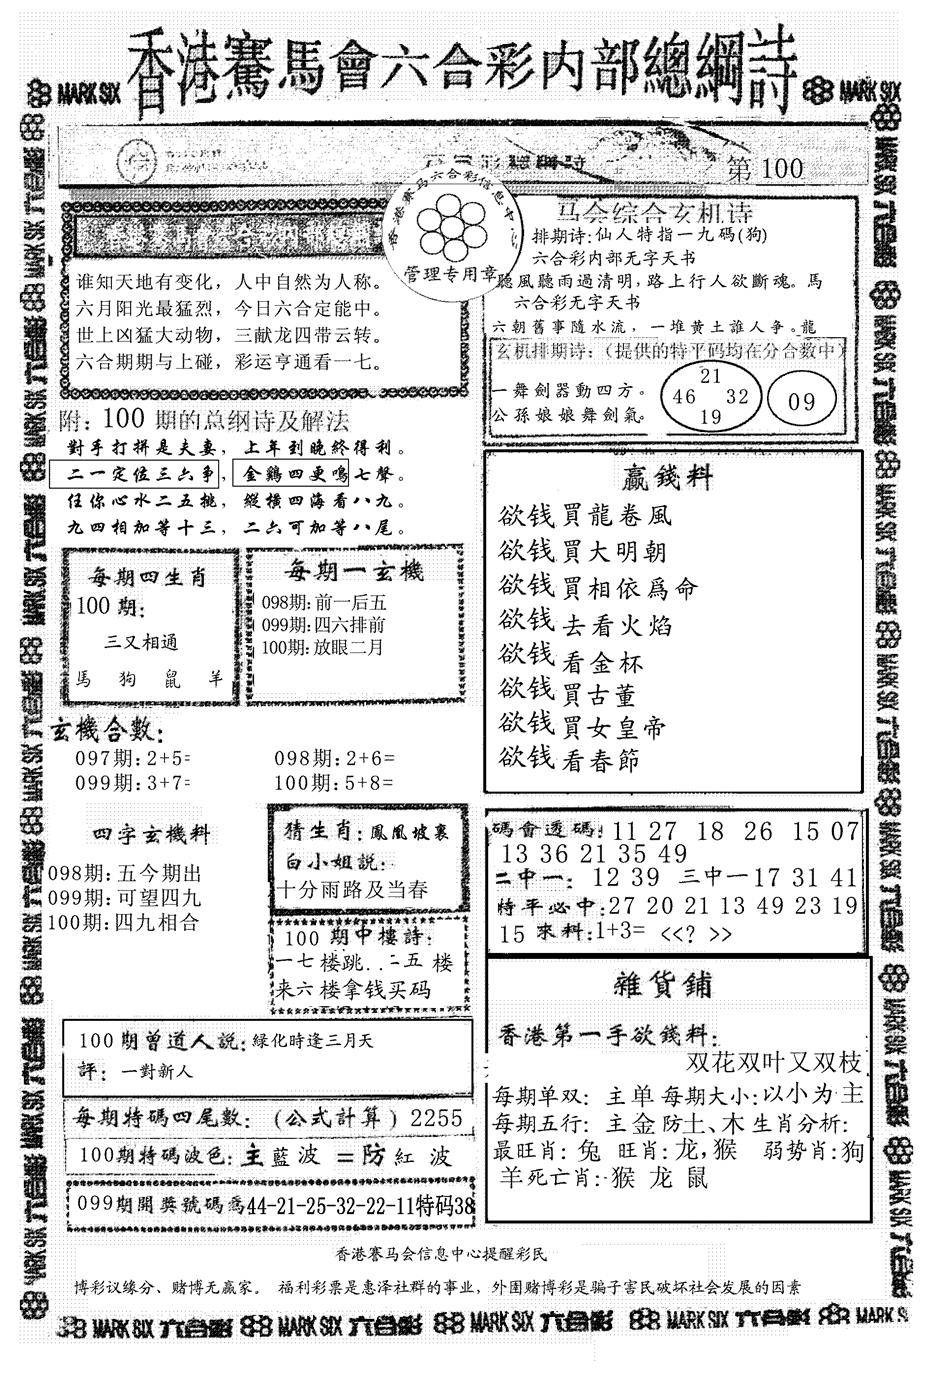 香港賽馬會六合彩内部總綱詩
MARK SIX
MARK SIX
第 100
香港赛马六合彩信息中
管理专用章
谁知天地有变化，人中自然为人称。
六月阳光最猛烈，今日六合定能中。
世上凶猛大动物，三献龙四带云转。
六合期期与上碰，彩运亨通看一七。
马会综合玄机诗
排期诗:仙人特指一九碼(狗)
六合彩内部无字天书
聽風聽雨過清明,路上行人欲斷魂。馬
六合彩无字天书
六朝舊事隨水流，一堆黄土誰人争。龍
玄机排期诗:（提供的特平码均在分合数中）
一舞劍器動四方。
公孫娘娘舞劍氣。
21
46 32
19
09
附: 100 期的总纲诗及解法
對手打拼是夫妻，上年到晚終得利。
二一定位三六争，金鷄四更鳴七聲。
任你心水二五挑，縱横四海看八九。
九四相加等十三，二六可加等八尾。
每期四生肖
100 期:
三又相通
馬 狗 鼠 羊
每期一玄機
098期:前一后五
099期:四六排前
100期:放眼二月
赢錢料
欲钱買龍卷風
欲钱買大明朝
欲钱買相依爲命
欲钱去看火焰
欲钱看金杯
欲钱買古董
欲钱買女皇帝
欲钱看春節
玄機合數:
097期:2+5= 098期:2+6=
099期:3+7= 100期:5+8=
四字玄機料
098期:五今期出
099期:可望四九
100期:四九相合
猜生肖: 鳳凰坡裏
白小姐説:
十分雨路及当春
100 期中樓詩:
一七楼跳..二五 楼
来六楼拿钱买码
碼會透碼: 11 27 18 26 15 07
13 36 21 35 49
二中一: 12 39 三中一17 31 41
特平必中:27 20 21 13 49 23 19
15 來料:1+3= <<? >>
雜貨鋪
香港第一手欲錢料:
双花双叶又双枝
每期单双: 主单 每期大小:以小为主
每期五行: 主金防土、木 生肖分析:
最旺肖: 兔 旺肖: 龙,猴 弱势肖:狗
羊死亡肖:猴 龙 鼠
100期曾道人説:緑化時逢三月天
評: 一對新人
每期特碼四尾數: (公式計算) 2255
100期特碼波色: 主 藍波 =防 紅 波
099期開奖號碼爲44-21-25-32-22-11特码38
香港赛马会信息中心提醒彩民
博彩议缘分、赌博无赢家。 福利彩票是惠泽社群的事业，外围赌博彩是骗子害民破坏社会发展的因素
MARK SIX 六合彩 MARK SIX 六合彩 MARK SIX 六合彩 MARK SIX 六合彩 MARK SIX